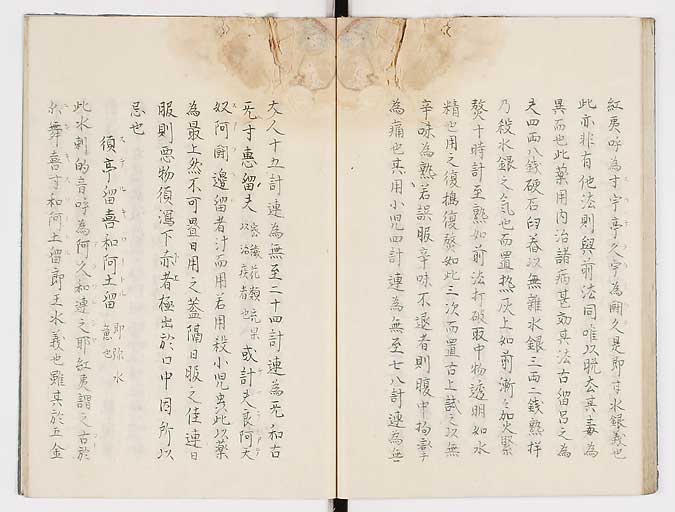 紅夷呼為寸宇亭久宇為爾久是即寸水銀義也
此亦非有他法則與前法同唯以脱去其毒為
異而也此薬用内治諸病甚効其法古留呂之為
四両八銭硬石臼舂以無雑水銀三両二銭熟拌
乃殺水銀之気也而置熱灰上如前漸々加火緊
燹十時計至熟如前法打破取中物透明如水
精也用之復搗復燹如此三次而置舌上試之以無
辛味為熟若誤服辛味不退者則腹中拘攣
為痛也其用小児四計連為無至七八計連為無
大人十五計連為無至二十四計連為無和古
寸惠留夫 以治疾者也 或計夫良阿天
奴阿爾邉留者汁而用若用殺小児虫此以薬
為最上然不可畳日用之蓋隔日服之佳連日
服則悪物須瀉下亦者極出於口中因所以
忌也
須亭留喜和阿土留 即弥水意也
此水刺的音呼為何久和連之耶紅夷謂之古於
舞喜寸和何土留即王水義也雖其於五金